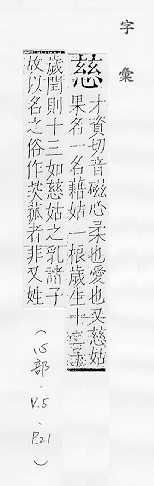 字彙
慈 才資切音磁心柔也愛也又慈姑
果名一名藉姑一根歲生十二子
歲閏則十三如慈姑之乳諸子
故以名之俗作茨菰者非又姓
(心部．V.5．P.21)